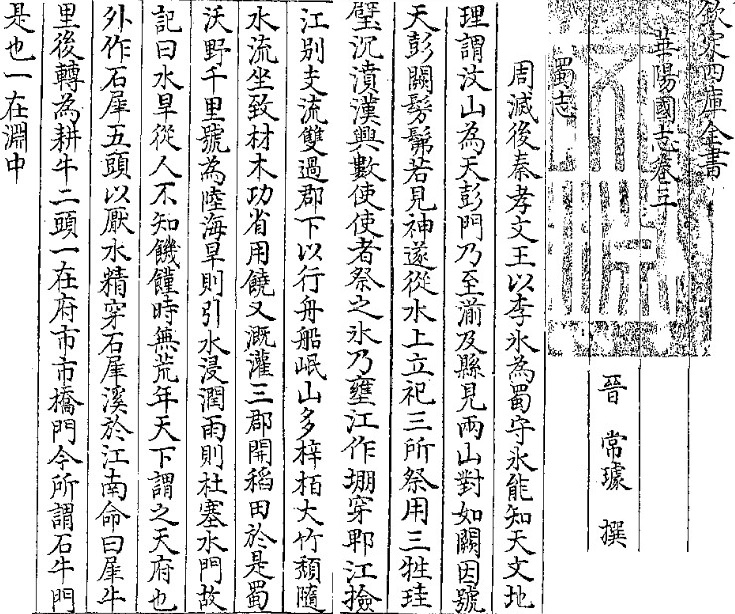 欽定四庫全書
華陽國志卷三
晉 常璩 撰
蜀志
周滅後秦孝文王以李氷為蜀守氷能知天文地
理謂汶山為天彭門乃至湔及縣見兩山對如闕因號
天彭闕髣髴若見神遂從水上立祀三所祭用三牲珪
璧沉濆漢興數使使者祭之氷乃壅江作堋穿郫江撿
江别支流雙過郡下以行舟船岷山多梓栢大竹頹隨
水流坐致材木功省用饒又溉灌三郡開稻田於是蜀
沃野千里號為陸海旱則引水浸潤雨則杜塞水門故
記曰水旱從人不知饑饉時無荒年天下謂之天府也
外作石犀五頭以厭水精穿石犀溪於江南命曰犀牛
里後轉為耕牛二頭一在府市市橋門今所謂石牛門
是也一在淵中